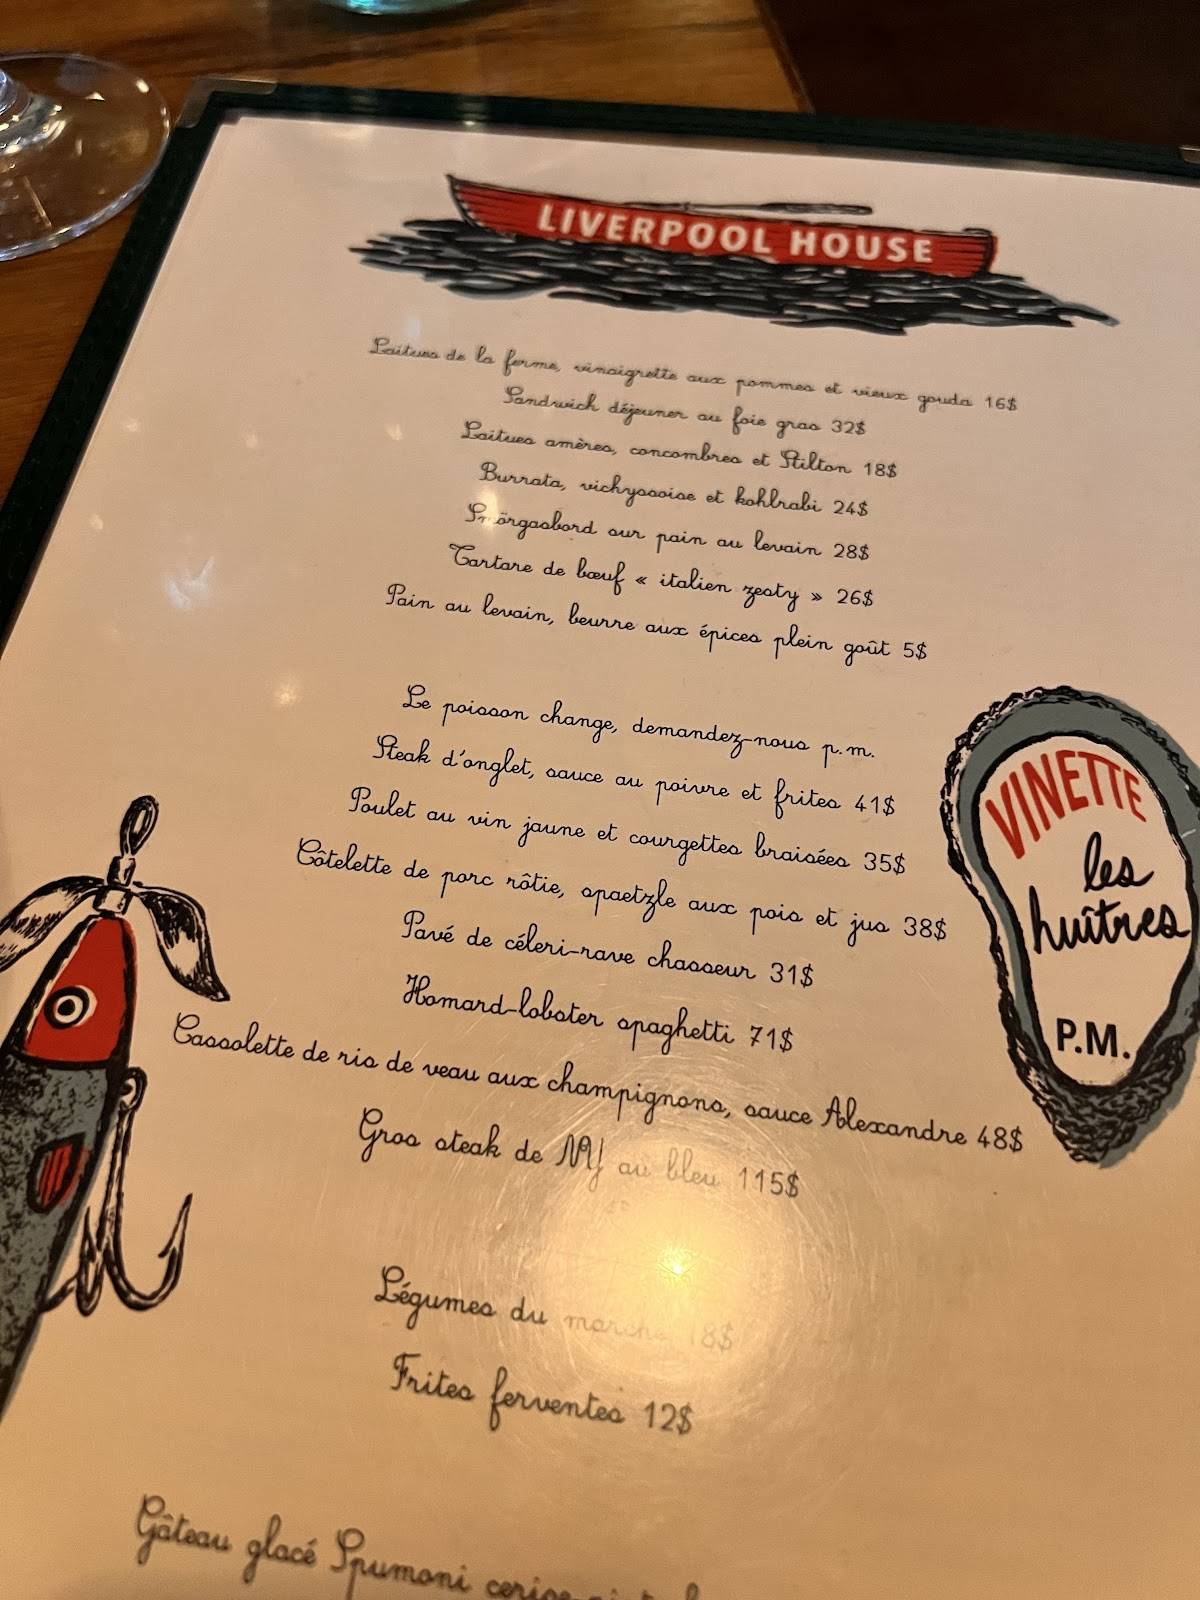 LIVERPOOL HOUSE
Laitues de la ferme, vinaigrette aux pommes et vieux gouda 16$
Sandwich déjeuner au foie gras 32$
Laitues amères, concombres et Stilton 18$
Burrata, vichyssoise et kohlrabi 24$
Smörgasbord sur pain au levain 28$
Tartare de bœuf « italien zesty » 26$
Pain au levain, beurre aux épices plein goût 5$
Le poisson change, demandez-nous p.m.
Steak d'onglet, sauce au poivre et frites 41$
Poulet au vin jaune et courgettes braisées 35$
Côtelette de porc rôtie, spaetzle aux pois et jus 38$
Pavé de céleri-rave chasseur 31$
Homard-lobster spaghetti 71$
Cassolette de ris de veau aux champignons, sauce Alexandre 48$
Gros steak de NY au bleu 115$
VINETTE
les
huîtres
P.M.
Légumes du marché 18$
Frites ferventes 12$
Gâteau glacé Spumoni